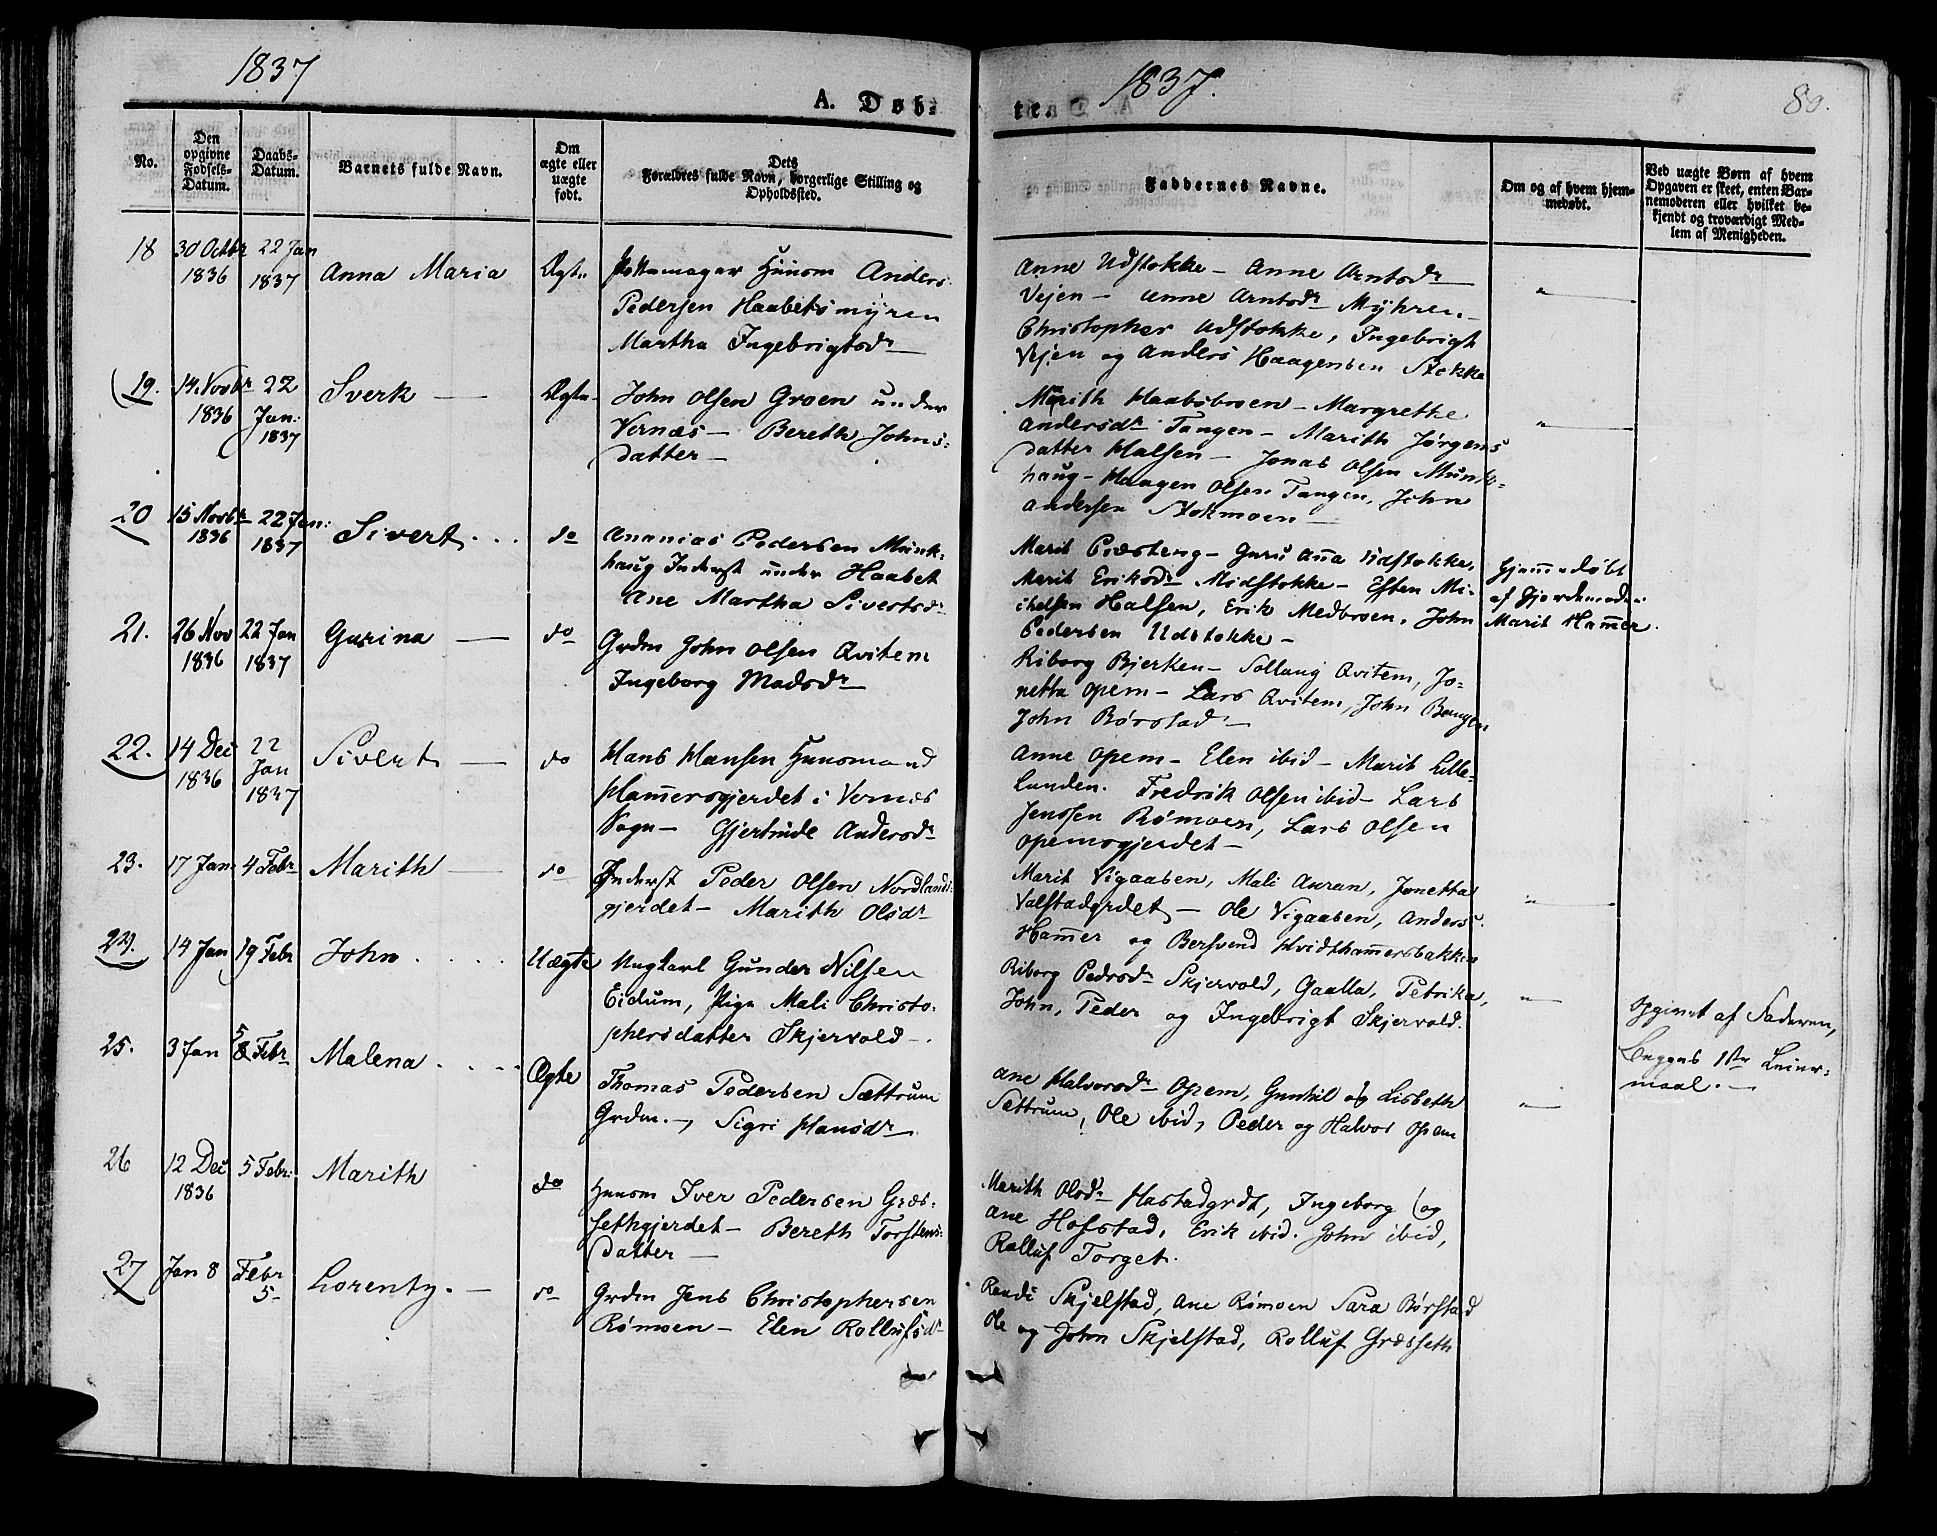 1837
A. Døb-
No.
Den opgivne Fødsels-Datum.
Daabs-Datum.
Barnets fulde Navn.
Om ægte eller uægte født.
Dets Forældres fulde Navn, borgerlige Stilling og Opholdssted.
18 30 Octbr 1836 22 Jan 1837 Anna Maria Ægte
Huusm Anders
Pedersen Haabetsmyren
Martha Ingebrigtsdr
19. 14 Novbr 1836 22 Jan: 1837 Sverk Ægte
John Olsen Groen under
Vernæs – Bereth Johns-
datter –
20 15 Novbr 1836 22 Jan: 1837 Sivert do
Ananias Pedersen Munk-
haug Inderst under Haabet
Ane Martha Sivertsdr
21. 26 Nov 1836 22 Jan 1837 Gurina do
Grdm John Olsen Qvitem
Ingeborg Madsdr
22. 14 Dec 1836 22 Jan 1837 Sivert do
Hans Hansen Huusmand
Hamersgjerdet i Vernes
Sogn – Gjertrude Andersdr
23. 17 Jan 4 Febr Marith do
Inderst Peder Olsen Nordlands-
gjerdet – Marith Olsdr
24. 14 Jan 19 Febr John Uægte
Ungkarl Gunder Nilsen
Eidum, Pige Mali Christo-
phersdatter Skjervold –
25. 3 Jan 5 Febr Malena Ægte
Thomas Pedersen Sættrum
Grdm. –, Sigri Hansdr
26 12 Dec 1836 5 Febr: Marith do
Huusm Iver Pedersen Græs-
sethgjerdet – Bereth Torstens-
datter –
27 Jan 8 Febr 5 Lorentz. – do
Grdm Jens Christophersen
Rømoen – Elen Rollufsdr
1837.
80.
ten
Faddernes Navne.
Om og af hvem hjem-
medøbt.
Ved uægte Børn af hvem
Opgaven er skeet, enten Bar-
nemoderen eller hvilket be-
kjendt og troværdigt Med-
lem af Menigheden.
Anne Udstokke – Anne Arntsdr
Vejen – Anne Arntsdr Myhren –
Christopher Udstokke, Ingebrigt
Vejen og Anders Haagensen Stokke
Marith Haabsbroen – Margrethe
Andersdr Tangen – Marith Jørgens
datter Halsen – Jonas Olsen Munk-
haug – Haagen Olsen Tangen, John
Andersen Stokmoen –
Marit – Guru Anna Udstokke,
Marit Eriksdr Midstokke – Esten Mi-
chelsen Halsen, Erik Medbroen, John
Pedersen Udstokke –
Hjemmedøbt
af Gjordemoder
Marit Hamer.
Riborg Bjerken – Sollaug Qvitem, Jo-
netta Opem – Lars Qvitem, John Baugen
John Børstad –
Anne Opem – Elen ibid – Marit Lille-
lunden. Fredrik Olsen ibid – Lars
Jenssen Rømoen, Lars Olsen
Opemsgjerdet –
Marit Vigaasen, Mali Auran, Jonetta
Valstadgrdet – Ole Vigaasen, Anders
Hamer og Bersvend Hvidthamersbakken
Riborg Pedersdr Skjervold, Gaalla, Petrika,
John, Peder og Ingebrigt Skjervold.
Opgivet af Faderen,
Begges 1ste Leier-
maal. –
Ane Halvorsdr Opem, Gunhil og Lisbeth
Sættrum, Ole ibid, Peder og Halvor Opem
Marith Olsdr Hastadgrdt, Ingeborg og
Ane Hofstad, Erik ibid. John ibid,
Rolluf Torget.
Randi Skjelstad, Ane Rømoen Sara Børstad
Ole og John Skjelstad, Rolluf Græsseth